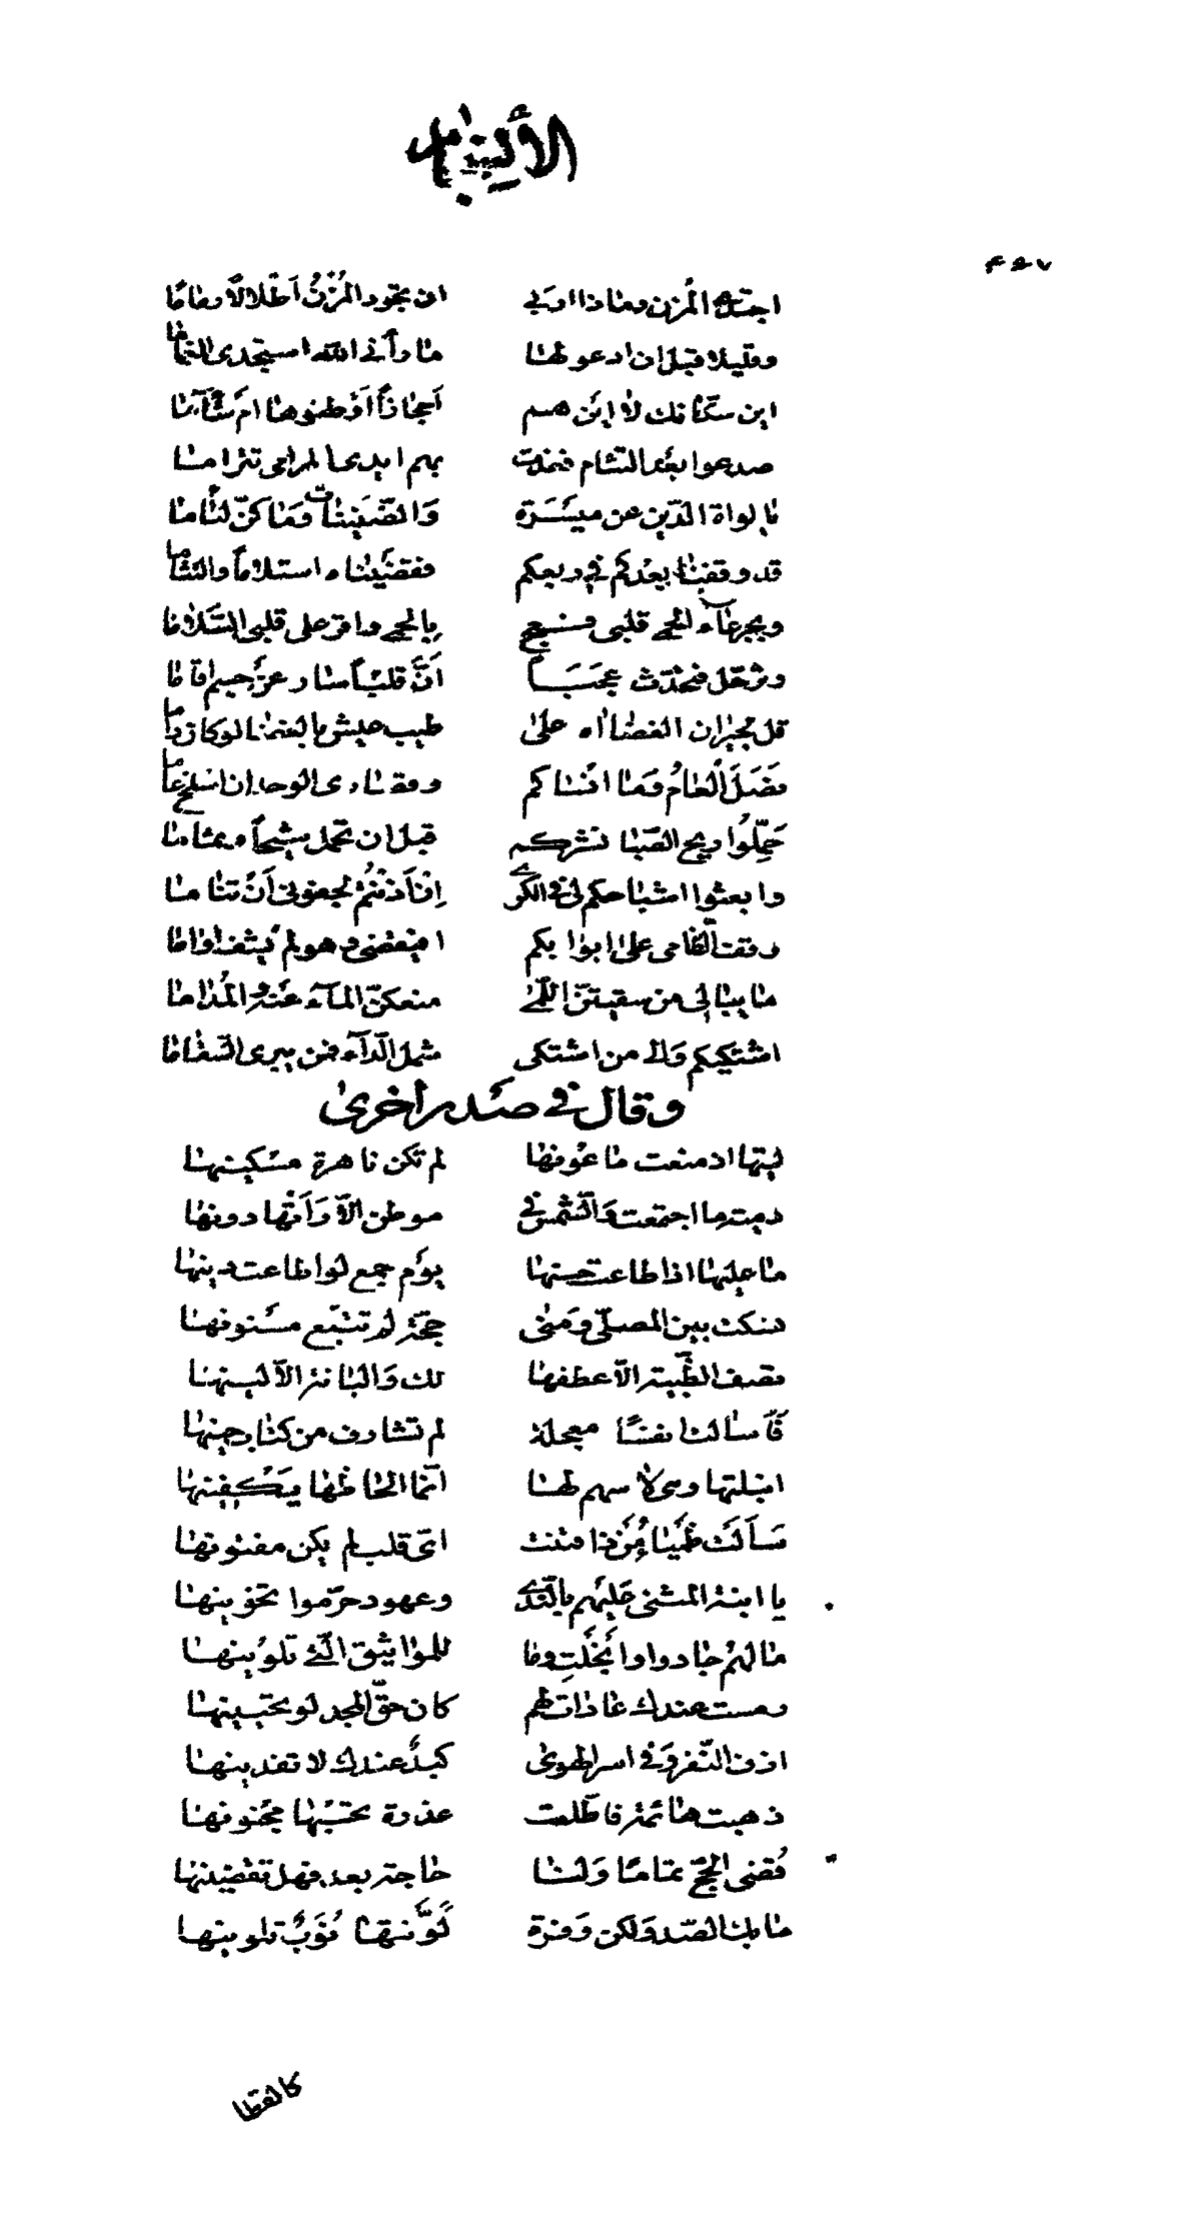 ۴۵۷
اجتدى المُزن وماذا اربى ان تجود المُزنُ اَطْلالًا رماما
وقليلا قبل ان ادعو لها ما رأنى الله استجدى الغماما
اين سكّانك لا اين هم اَحِجازًا اَوْطنوها ام شَآمَا
صدعوا بعْد التئام فغدت بهم ايدى المرامى تترامى
يا لواة الدّين عن ميسَرَة وَالضّنينات وَما كنّ لئاما
قد وقفنا بعْدكم فى ربعكم فقضَيْناه استلامًا والتثاما
وبجرعآء الحمى قلبى فعج بالحمى واقر على قلبى السَّلاما
وترحّل فتحدّث عجَبَاً اَنَّ قلبًا سار عن جسم اقاما
قل لجيران الغضا اه على طيب عيش بالغضا لو كان داما
نصَلَ العامُ وَما انساكم
حَمِّلُوا ريح الصّبا نشركم قبل ان تحمل شيحًا وثماما
وابعثوا اشباحكم لى فى الكرى اِن اَذنتُم لجفونى اَنْ تناما
وقف الظّامى على ابوابكم افيقضى وهو لم يشف اواما
ما يبالى من سقيتنّ اللّمى منعكنّ المآء عذبًا والمُداما
اشتكيكم وَالى من اشتكى شمل الدّآء فمن يبرى السّقاما
وقال فى صَدر أخرى
ليتها اذ منعت ماعونها لم تكن ناهرة مسكينها
دميته ما اجتمعت وَالشّمس فى موطن الاّ وَاَنّها دونها
ما عليها اذا طاعت حسنها يوْم جمع لو اطاعت دينها
هتكت بين المصلّى وَمنى حجّة لم تتّبع مسنونها
تصف الظّبية الاّ عطفها لك وَالبانة الاّ لينها
قآ سالت نفسًا معجلة لم تشارف من كتاب حينها
انبلتها وهى لا سهم لها انّما الحاظها يَكفينها
سَاَلَتْ ظَبْيًا مُنْ ذا فتنت اىّ قلب لم يكن مفتونها
يا ابنة المثنى عَليْهم بالنّدى وعهود حرّموا تخوينها
ما لهُم جادوا وابخَلْتِ وما للمواثيق الّتى تلوِينها
وست عندك عاداتهم كان حقّ المجد لو تحيينها
اذن النّفر وَفى اسر الهوى كبدٌ عندك لا تفدينها
ذهبت هائمة فاطّلعت عذرة تحسَبها مجْنونها
قُضى الحجّ تمامًا وَلنا حاجة بعد فهل تقضينها
ما بك الصّد وَلكن وفرة لَوَّنتها نُوَبٌ تلوينها
كالقطا